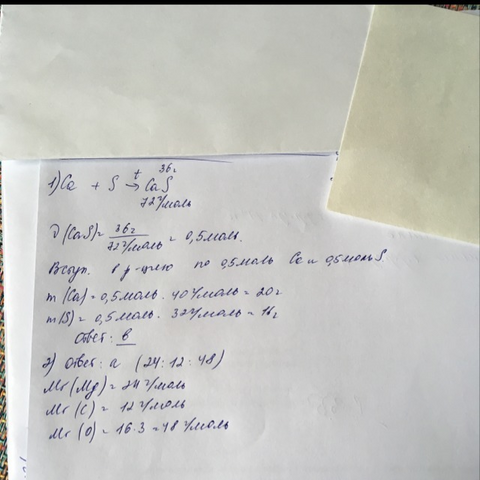 36г
1) Ca + S →t CaS
72г/моль
ν(CaS) = 36г / 72г/моль = 0,5моль.
Вступ. в р-цию по 0,5моль Ca и 0,5моль S
m(Ca) = 0,5моль · 40г/моль = 20г
m(S) = 0,5моль · 32г/моль = 16г
Ответ: в
2) Ответ: а (24:12:48)
Mr(Mg) = 24г/моль
Mr(C) = 12г/моль
Mr(O) = 16·3 = 48г/моль